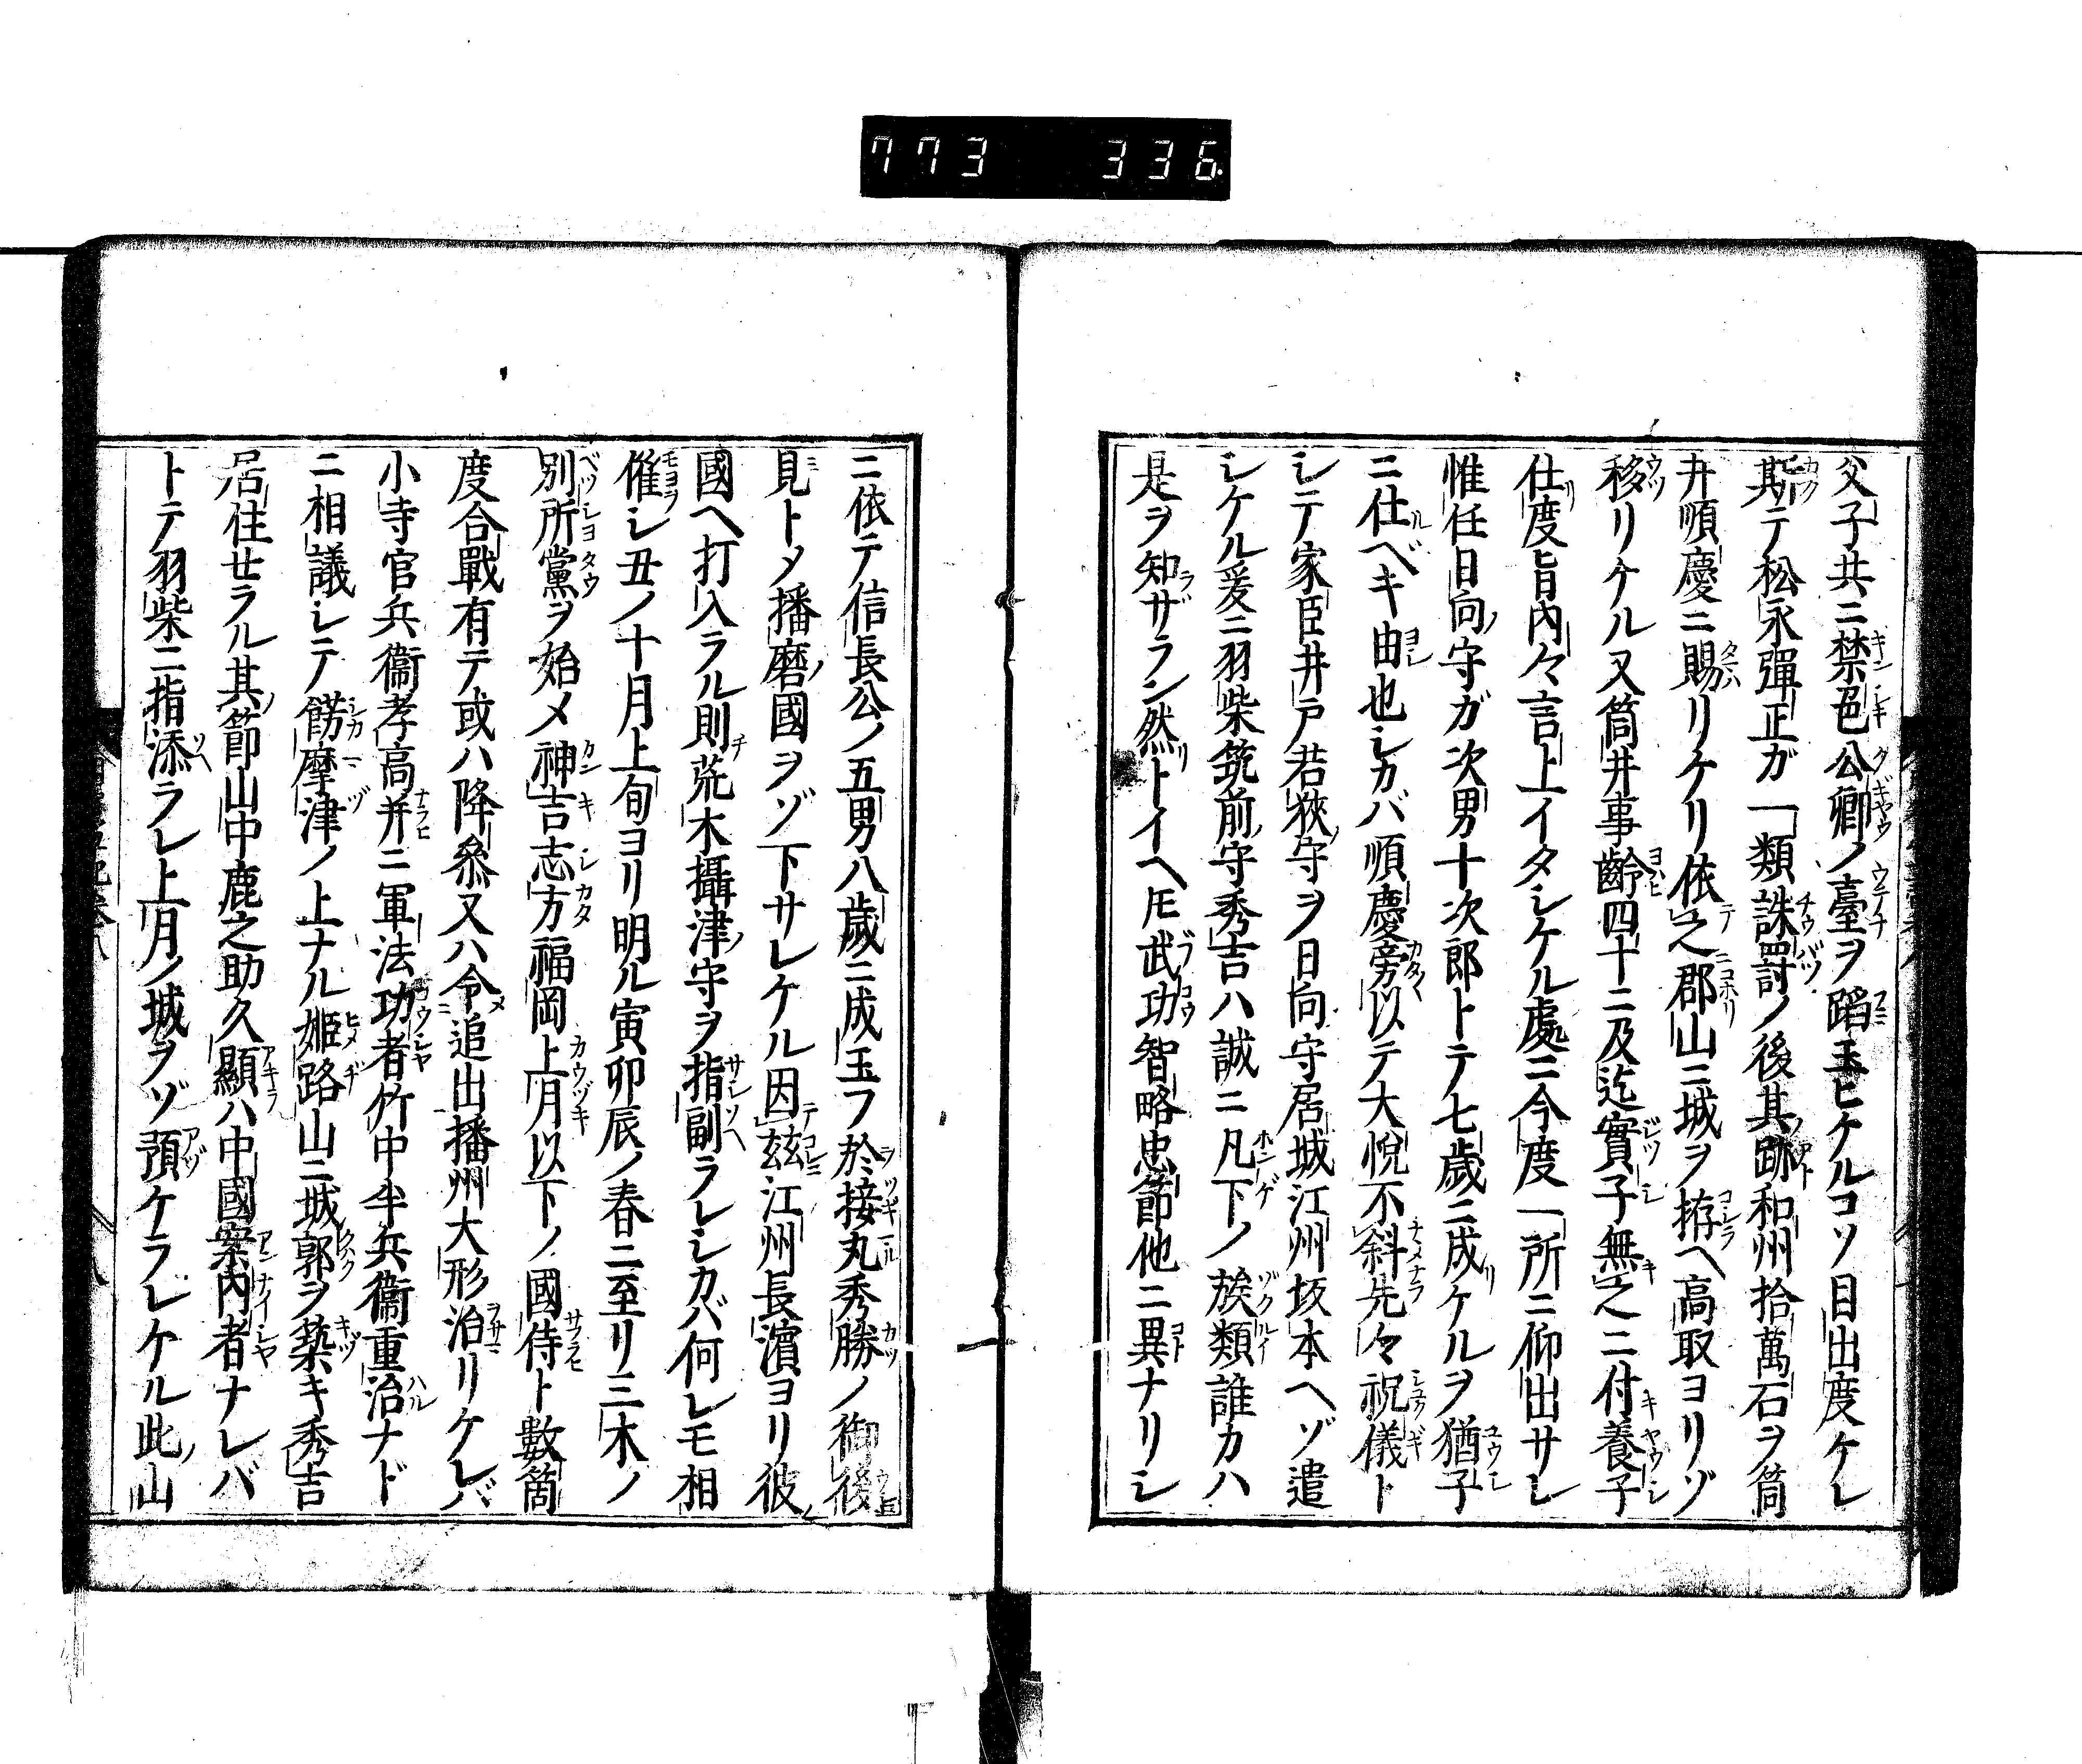 773 336
父子共ニ禁色公卿ノ臺ヲ蹈玉ヒケルコソ目出度ケレ
斯テ松永彈正ガ一類誅罸ノ後其跡和州拾萬石ヲ筒
井順慶ニ賜リケリ依之郡山ニ城ヲ拵ヘ高取ヨリゾ
移リケル又筒井事齡四十ニ及迄實子無之ニ付養子
仕度旨內々言上イタシケル處ニ今度一所ニ仰出サレ
惟任日向守ガ次男十次郎トテ七歲ニ成ケルヲ猶子
ニ仕ベキ由也シカバ順慶旁以テ大悅不斜先々祝儀ト
シテ家臣井戸若狹守ヲ日向守居城江州坂本ヘゾ遣
シケル爰ニ羽柴筑前守秀吉ハ誠ニ凡下ノ族類誰カハ
是ヲ知ザラン然トイヘ𪜈武功智略忠節他ニ異ナリシ
ニ依テ信長公ノ五男八歲ニ成玉フ於接丸秀勝ノ御後
見トメ播磨國ヲゾ下サレケル因玆江州長濱ヨリ彼
國ヘ打入ラル則荒木攝津守ヲ指副ラレシカバ何レモ相
催シ丑ノ十月上旬ヨリ明ル寅卯辰ノ春ニ至リ三木ノ
別所黨ヲ始メ神吉志方福岡上月以下ノ國侍ト數箇
度合戰有テ或ハ降參又ハ令追出播州大形治リケレバ
小寺官兵衞孝高幷ニ軍法功者竹中半兵衞重治ナド
ニ相議シテ餝摩津ノ上ナル姬路山ニ城郭ヲ築キ秀吉
居住セラル其節山中鹿之助久顯ハ中國案內者ナレバ
トテ羽柴ニ指添ラレ上月ノ城ヲゾ預ケラレケル此山